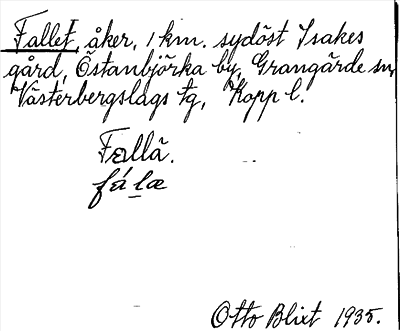 Fallet, åker, 1 km. sydöst Isakes
gård, Östanbjörka by, Grangärde sn,
Västerbergslags tg, Kopp l.
Fallä.
fá læ
Otto Blixt 1935.